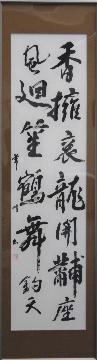 香擁衮龍開黼座
風迴笙鶴舞鈞天